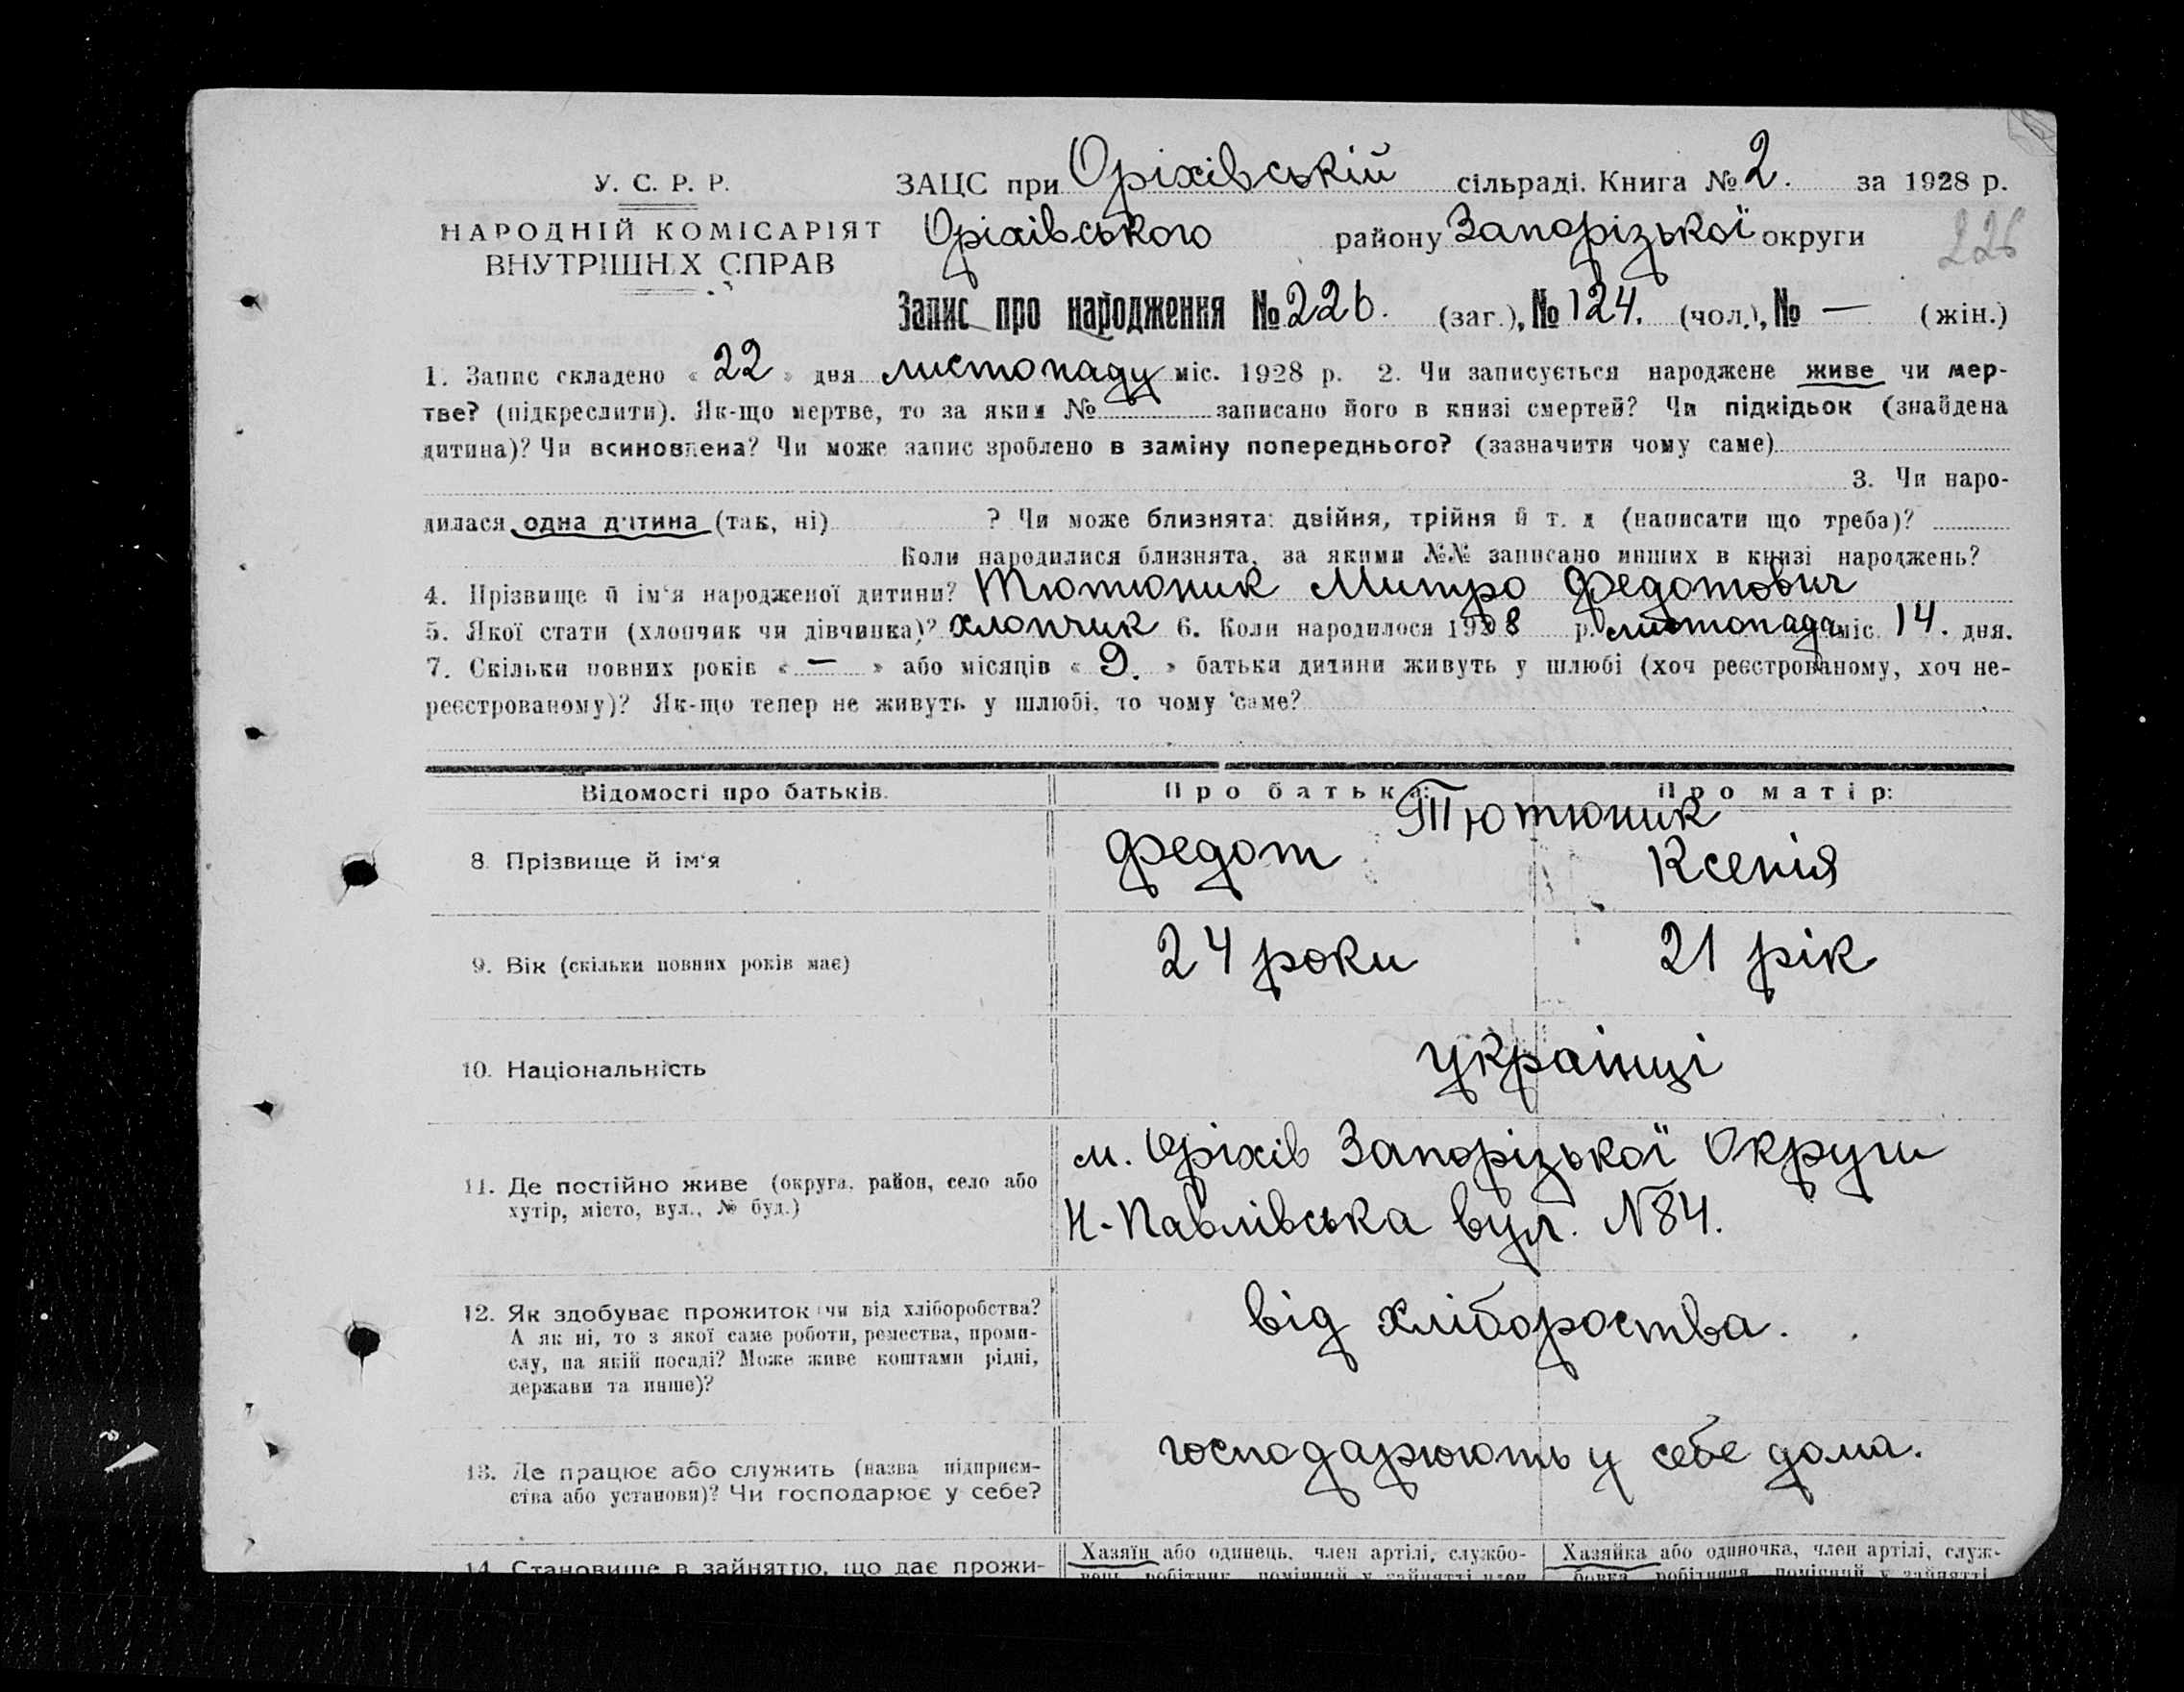 У. С. Р. Р.
НАРОДНІЙ КОМІСАРІЯТ
ВНУТРІШНІХ СПРАВ
ЗАЦС при Оріхівській сільраді. Книга № 2. за 1928 р.
Оріхівського району Запорізької округи
226
Запис про народження № 226. (заг.), № 124. (чол.), № — (жін.)
1. Запис складено « 22 » дня листопаду міс. 1928 р. 2. Чи записується народжене живе чи мер-
тве? (підкреслити). Як-що мертве, то за яким № записано його в книзі смертей? Чи підкідьок (знайдена
дитина)? Чи всиновлена? Чи може запис зроблено в заміну попереднього? (зазначити чому саме)
3. Чи наро-
дилася одна дитина (так, ні) ? Чи може близнята: двійня, трійня й т. д (написати що треба)?
Коли народилися близнята, за якими №№ записано инших в книзі народжень?
4. Прізвище й ім'я народженої дитини? Тютюник Митро Федотович
5. Якої стати (хлопчик чи дівчинка)? хлопчик 6. Коли народилося 1928 р. листопада міс. 14. дня.
7. Скільки повних років « — » або місяців « 9. » батьки дитини живуть у шлюбі (хоч реєстрованому, хоч не-
реєстрованому)? Як-що тепер не живуть у шлюбі, то чому саме?
Відомості про батьків. Про батька: Про матір:
Тютюник
8. Прізвище й ім'я Федот Ксенія
9. Вік (скільки повних років має) 24 роки 21 рік
10. Національність українці
11. Де постійно живе (округа, район, село або
хутір, місто, вул., № буд.)
м. Оріхів Запорізької Округи
Н-Павлівська вул. №84.
12. Як здобуває прожиток чи від хліборобства?
А як ні, то з якої саме роботи, ремества, проми-
слу, на якій посаді? Може живе коштами рідні,
держави та инше)?
від хлібороства.
13. Де працює або служить (назва підприєм-
ства або установи)? Чи господарює у себе?
господарюють у себе дома.
14. Становище в зайнятю, що дає прожи-
Хазяїн або одинець, член артілі, службо-
вець, робітник, помічний у зайнятті член
Хазяйка або одиночка, член артілі, служ-
бовка, робітниця, помічний у зайнятті